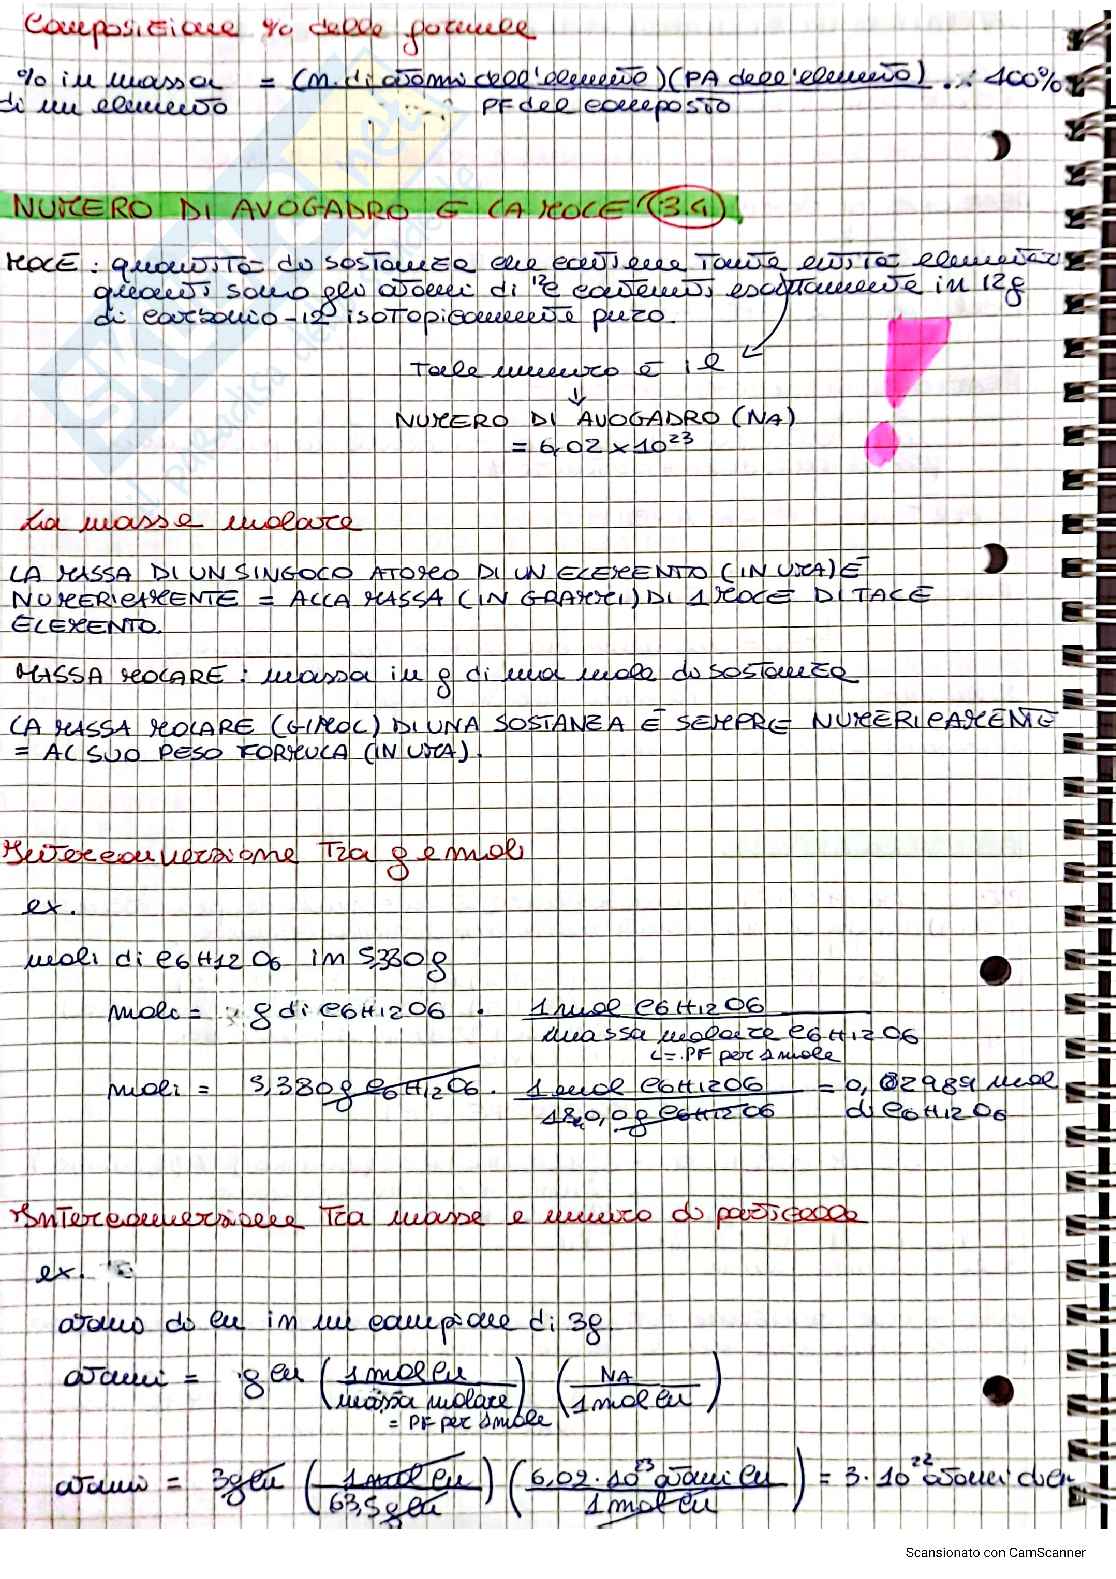 Composizione % delle formule
% in massa = (n. di atomi dell'elemento)(PA dell'elemento) · 100%
di un elemento PF del composto
NUMERO DI AVOGADRO E LA MOLE (3.4)
MOLE : quantità di sostanza che contiene tante entità elementari
quanti sono gli atomi di ¹²C contenuti esattamente in 12g
di carbonio-12 isotopicamente puro.
Tale numero è il
NUMERO DI AVOGADRO (NA)
= 6,02 × 10²³
La massa molare
LA MASSA DI UN SINGOLO ATOMO DI UN ELEMENTO (IN UMA) È
NUMERICAMENTE = ALLA MASSA (IN GRAMMI) DI 1 MOLE DI TALE
ELEMENTO.
MASSA MOLARE : massa in g di una mole di sostanza
LA MASSA MOLARE (G/MOL) DI UNA SOSTANZA È SEMPRE NUMERICAMENTE
= AL SUO PESO FORMULA (IN UMA).
Interconversione tra g e moli
ex.
moli di C6H12O6 in 5,380g
moli = g di C6H12O6 · 1 mol C6H12O6
massa molare C6H12O6
= PF per 1 mole
moli = 5,380g C6H12O6 · 1 mol C6H12O6 = 0,02989 mol
180,0g C6H12O6 di C6H12O6
Interconversione tra masse e numero di particelle
ex.
atomi di Cu in un campione di 3g
atomi = g Cu (1 mol Cu) (NA)
massa molare 1 mol Cu
= PF per 1 mole
atomi = 3g Cu (1 mol Cu) (6,02 · 10²³ atomi Cu) = 3 · 10²² atomi di Cu
63,5g Cu 1 mol Cu
Scansionato con CamScanner